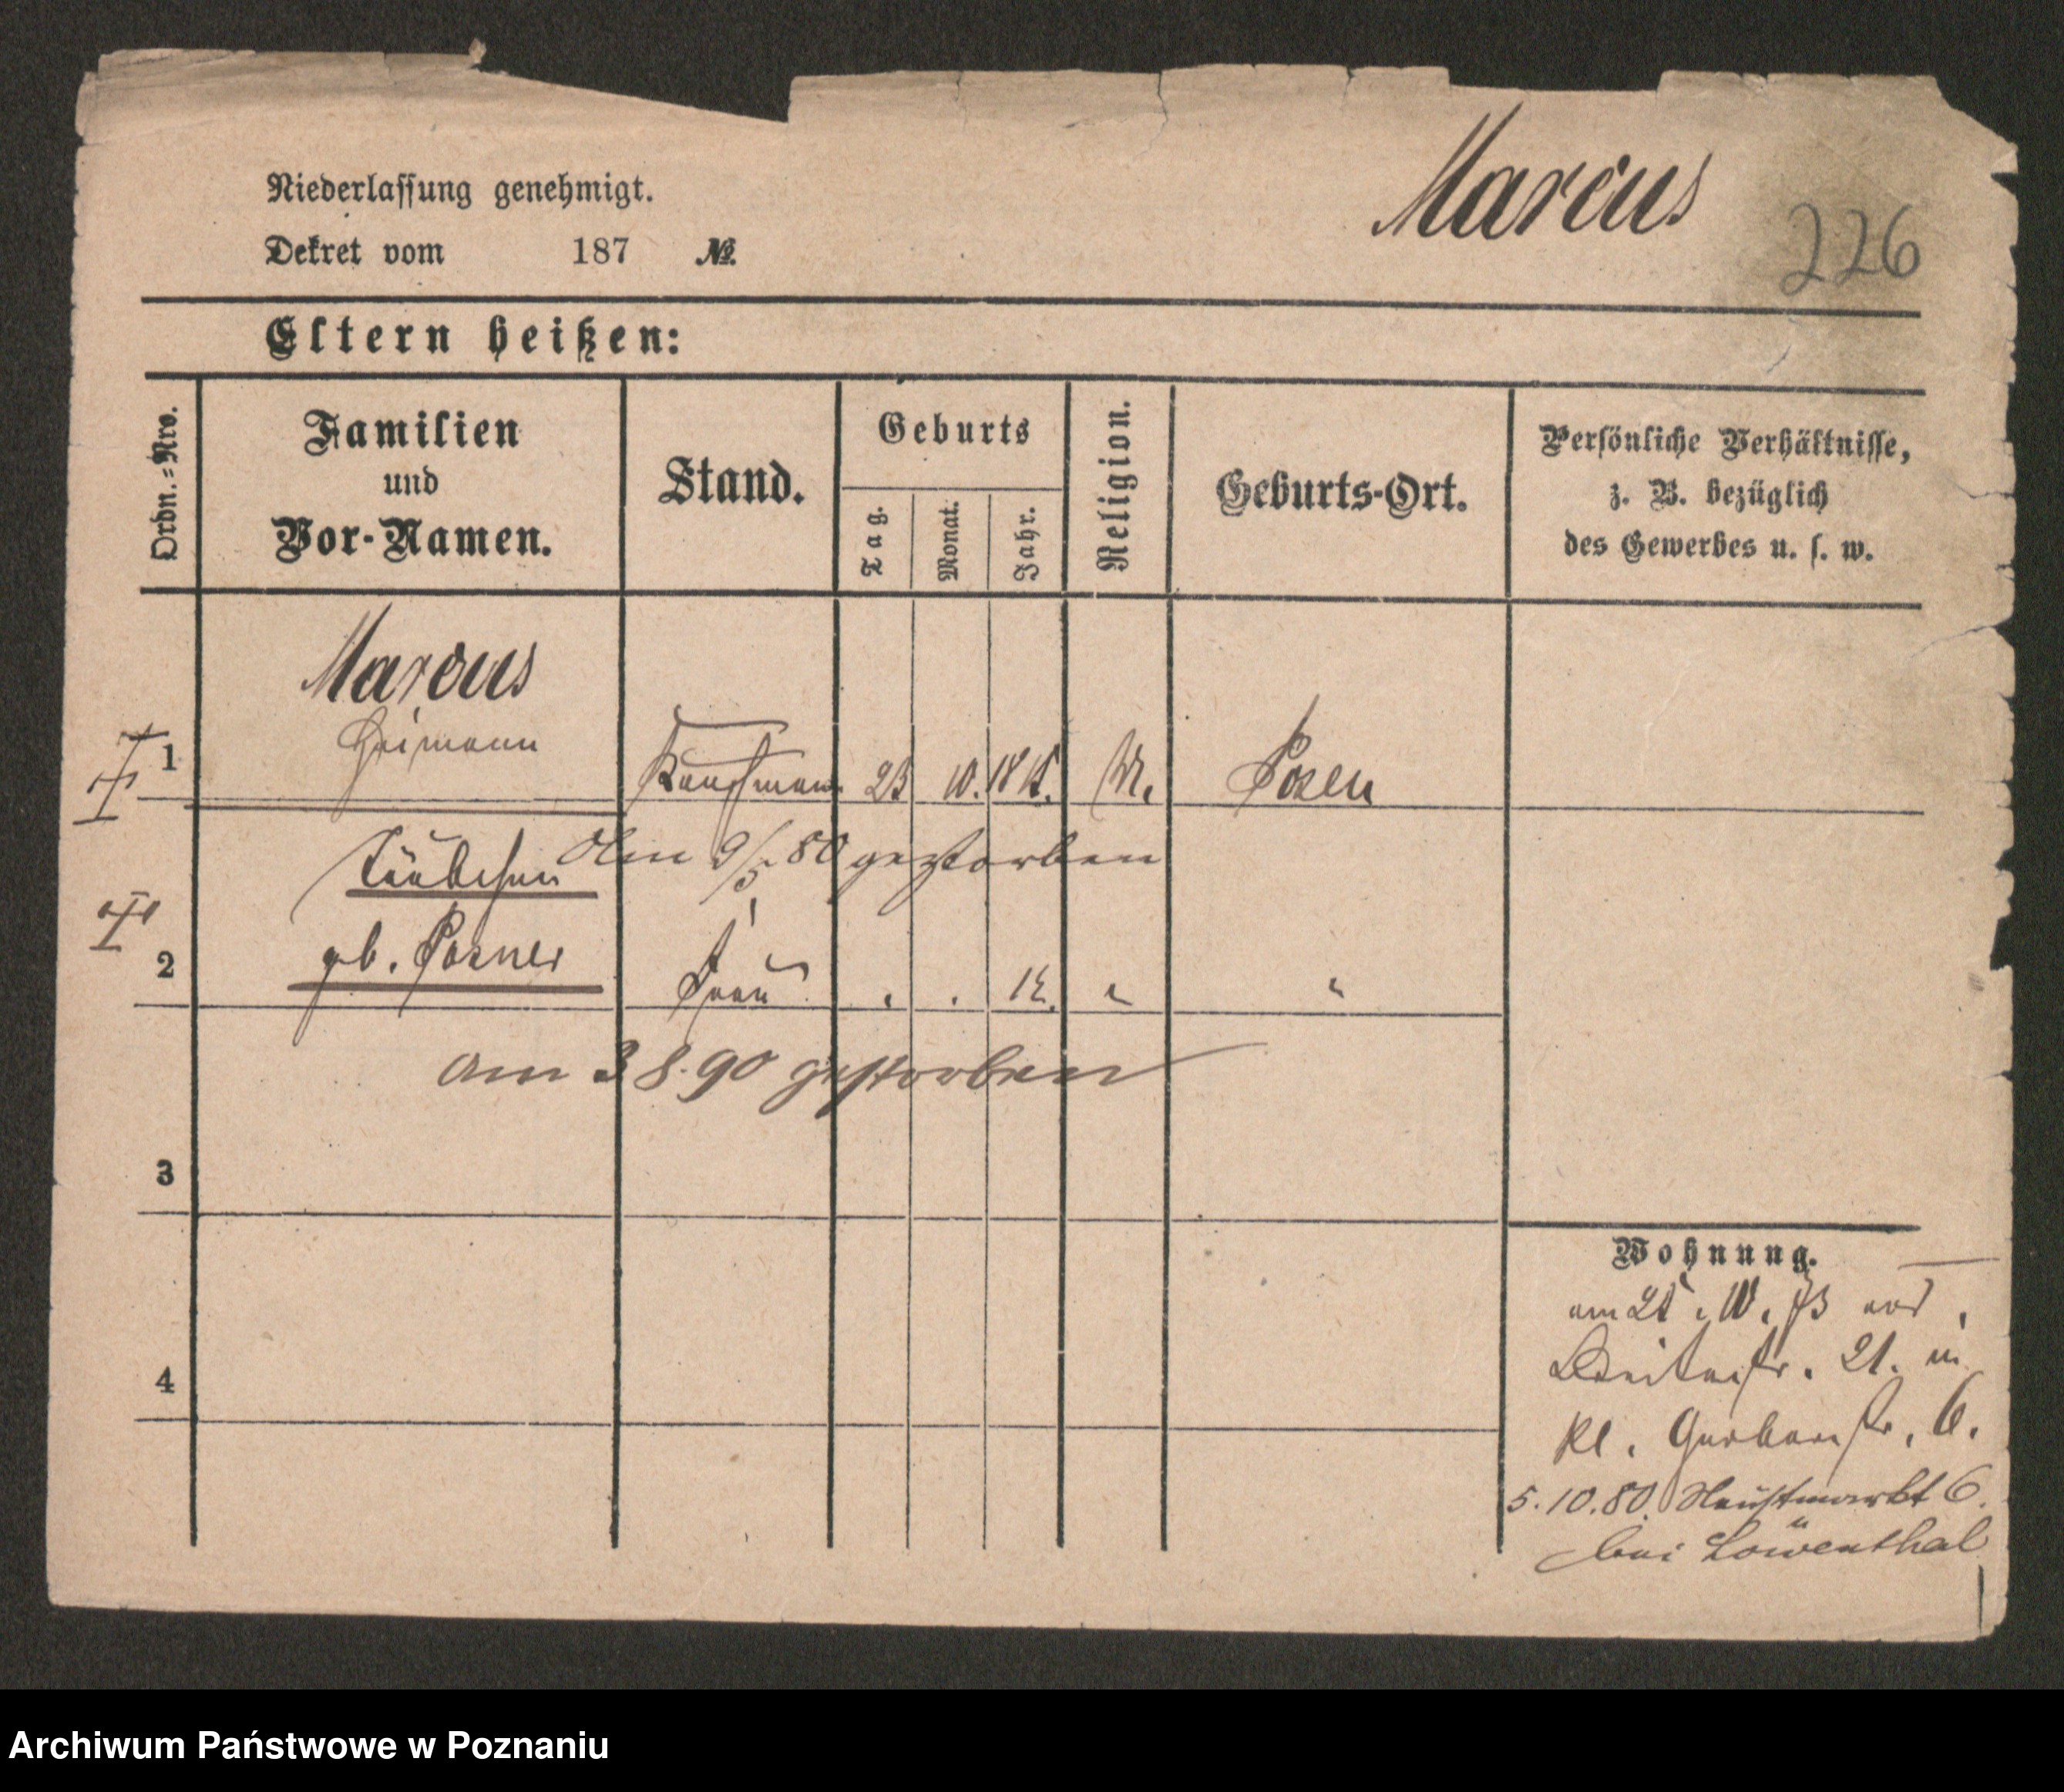 Marcus
226
Niederlassung genehmigt.
Dekret vom 187 №.
Eltern heißen:
Ordn.=Nro.
Familien
und
Vor-Namen.
Stand.
Geburts
Tag.
Monat.
Jahr.
Religion.
Geburts-Ort.
Persönliche Verhältnisse,
z. B. bezüglich
des Gewerbes u. s. w.
Marcus
Heimann
1 Kaufmann 10. Posen
Täubchen
Am 9/5 80 gestorben
gb. Posner
2 Frau
am 3 8. 90 gestorben
3
4
Wohnung.
am
Breitestr. 21. in
kl. Gerberstr. 6.
5. 10. 80. Neustmarkt 6.
bei Löwenthal
Archiwum Państwowe w Poznaniu